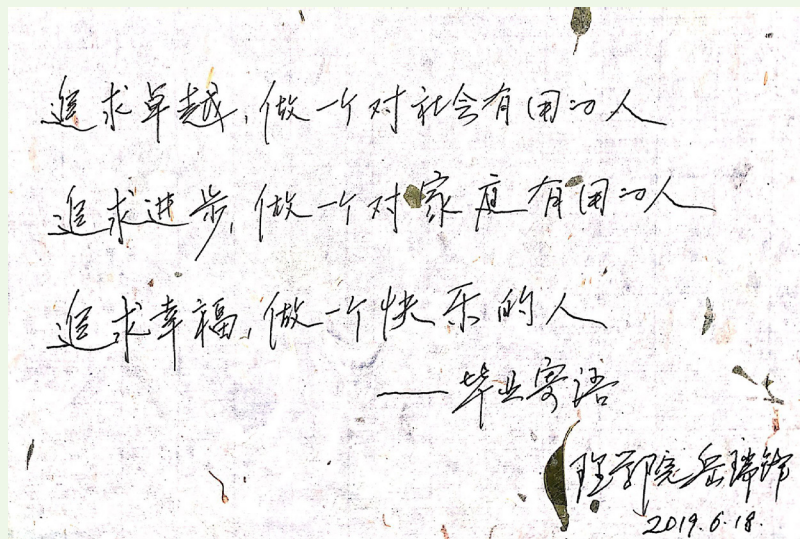 追求卓越,做一个对社会有用的人
追求进步,做一个对家庭有用的人
追求幸福,做一个快乐的人
——毕业寄语
理学院岳瑞锋
2019.6.18.